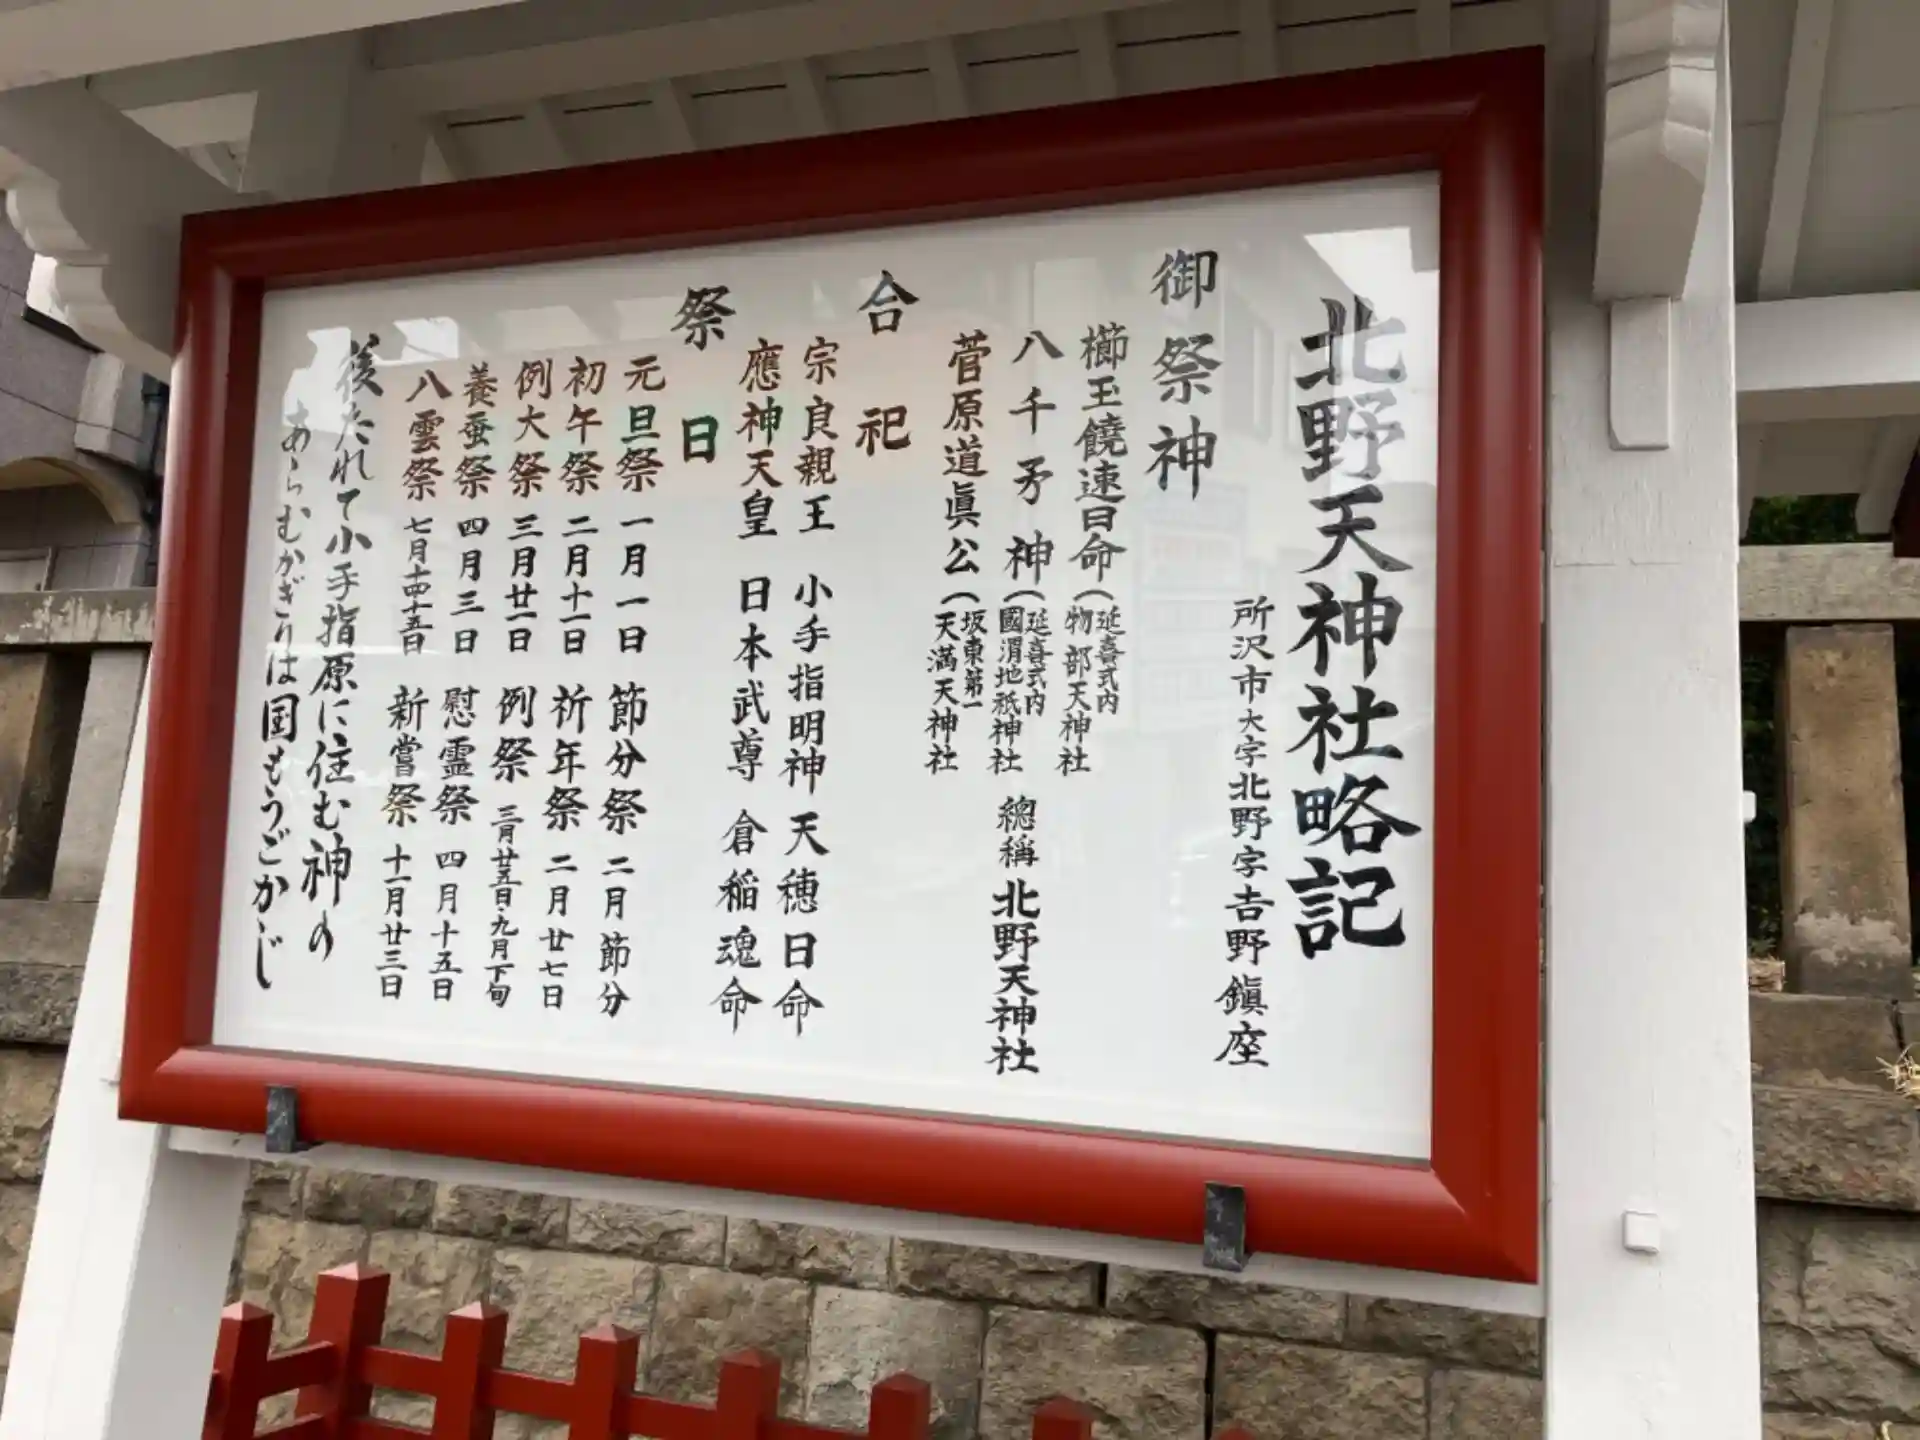 北野天神社略記
所沢市大字北野字吉野鎮座
御祭神
櫛玉饒速日命(延喜式内物部天神社
八千矛神(延喜式内國渭地祇神社
總稱北野天神社
菅原道眞公(坂東第一天満天神社
合祀
宗良親王 小手指明神 天穂日命
應神天皇 日本武尊 倉稲魂命
祭日
元旦祭 一月一日 節分祭 二月節分
初午祭 二月十一日 祈年祭 二月廿七日
例大祭 三月廿一日 例祭 三月廿五日・九月下旬
養蚕祭 四月三日 慰霊祭 四月十五日
八雲祭 七月十四十五日 新嘗祭 十一月廿三日
後たれて小手指原に住む神の
あらむかぎりは国もうごかじ